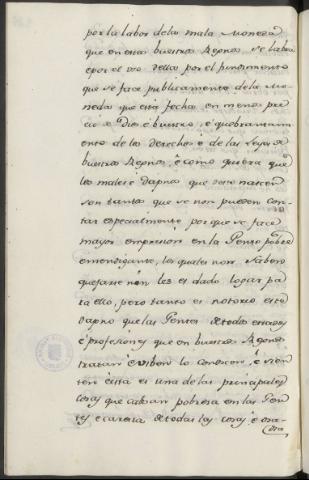 por la labor de las mala Moneda
que en estos buestros Regnos se labra
e por el uso della e por el fundimento
que se face publicamente de la Mo-
neda que está fecha en menos pre-
cio de Dios é buestro, é quebrantami-
ento de los derechos e de las Leyes de
buestros Regnos, é como quiera que
los males é dapnos que desto nascen
son tantos que se non pueden con-
tar especialmente porque se face
mayor empresion en la Gente pobre
é mendigante, los quales non saben
quejarse nin les es dado logar pa-
ra ello, pero tanto es notorio este
dapno que las Gentes de todos estados
é profesiones que en buestros Regnos
tratan é viben lo conoscen, é sien-
ten é ésta es una de las principales
cosas que causan pobresa en las Gen-
tes e carera de todas las cosas, é ora-